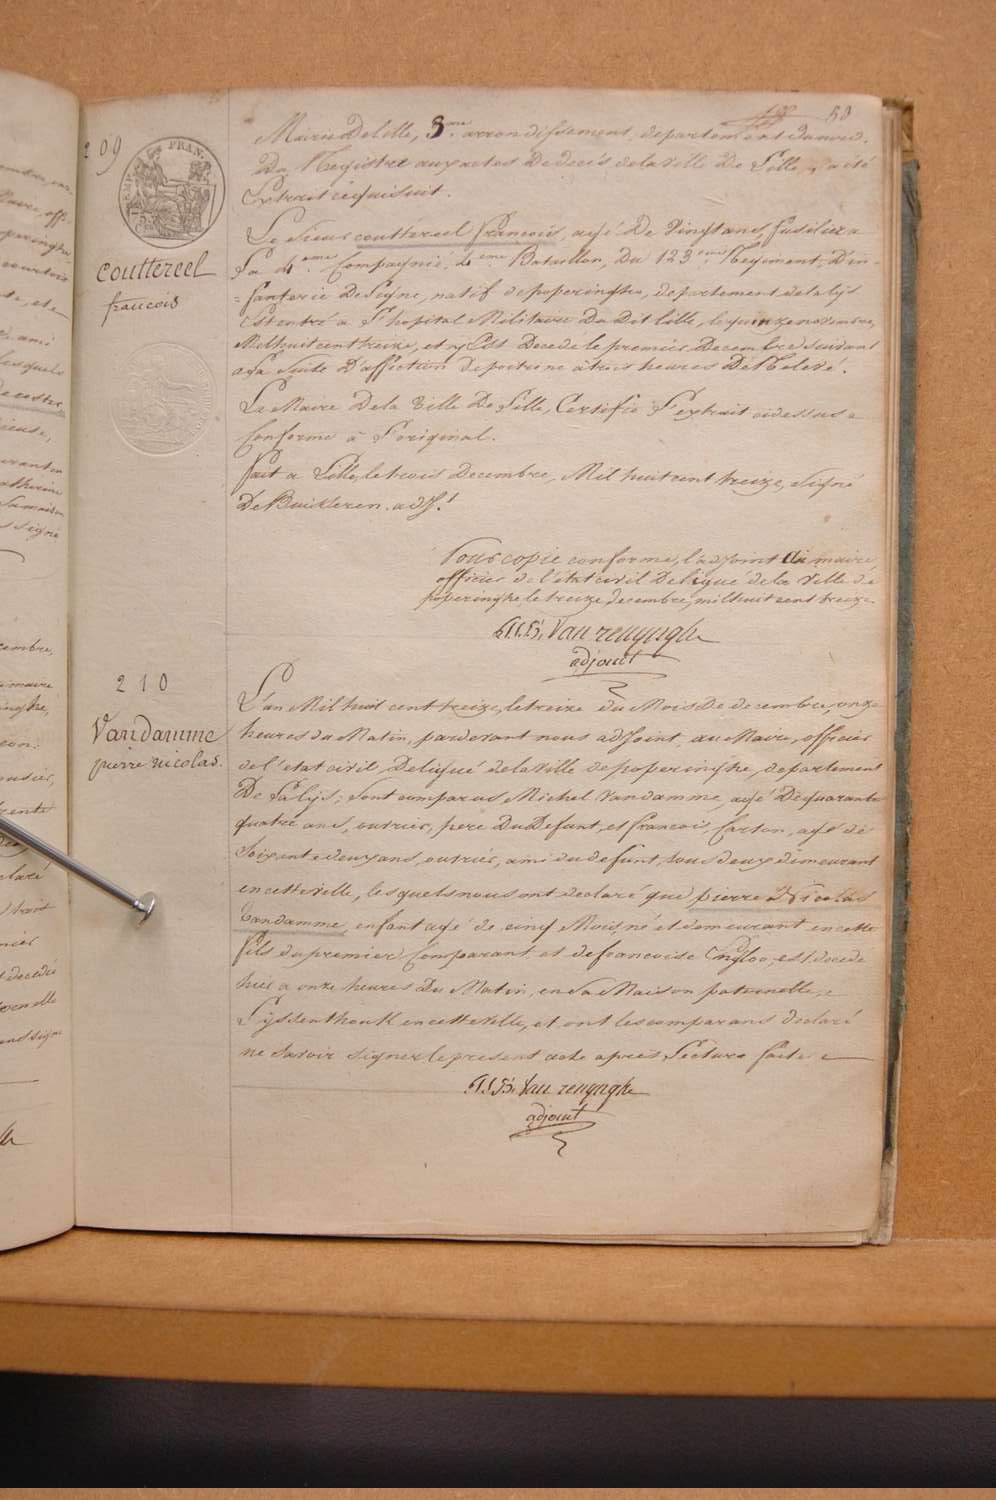 58
209
EMP. FRAN.
75 C.
Couttereel
francois
Mairie De Lille, 3.me arrondissement, departement du nord,
Du Registre aux actes De deces de la Ville De Lille, a été
Extrait cequi suit.
Le Sieur couttéreel francois, agé De Vingt ans, fusilier a
La 4.eme Compagnie, 4.eme Bataillon, Du 123.eme Regiment, D'in-
=fanterie De Ligne, natif de poperinghe, departement de la lijs
Est entré a l'hopital Militaire Du Dit Lille, le quinze novembre,
Mil huit cent treize, et y Est Decede le premier Decembre Suivant
a la Suite D'affection de poitrine à trois heures De Relevé.
Le Maire De la Ville De Lille, Certifie l'extrait cidessus
Conforme à l'original.
fait a Lille, le trois Decembre, Mil huit cent treize, signé
De Buikleren. adj.t
Pour copie conforme, l'adjoint du maire,
officier de l'etat civil Deligué de la Ville de
poperinghe le treize decembre, mil huit cent treize.
Van renynghe
adjoint
210
Vandamme
pierre nicolas.
L'an Mil huit cent treize, le treize du Mois De decembre, onze
heures du Matin, pardevant nous adjoint, au Maire, officier
de l'état civil, Deligué de la Ville de poperinghe, departement
De La lijs; sont comparus Michel Vandamme, agé De quarante
quatre ans, outrier, père Du Defunt, et francois Carton, agé de
Soixante deux ans, outrier, ami du defunt, tous deux demeurant
en cette ville, lesquels nous ont declaré que pierre Nicolas
Vandamme, enfant agé de cinq Mois, né et demeurant en cette
fils du premier Comparant et de francoise Engloo, est decedé
hier a onze heures Du Matin, en Sa Maison paternelle,
Lyssenthouk en cette ville, et ont les comparans declaré
ne Savoir signer le present acte après Lecture faite
Van renynghe
adjoint